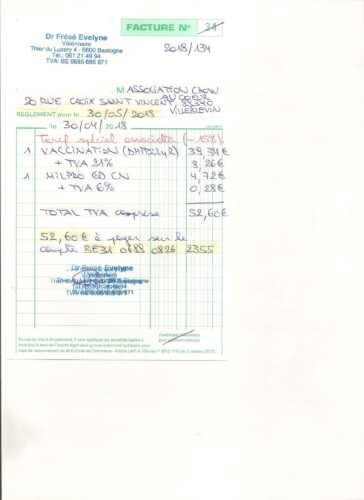 FACTURE N° 34
2018/134
Dr Frésé Evelyne
Vétérinaire
Thier du Luzery 4 - 6600 Bastogne
Tél.: 061 21 49 94
TVA: BE 0685 685 971
M ASSOCIATION CROW
AU COEUR
20 RUE CROIX SAINT VINCENT 89340
VILLENEVIN
RÈGLEMENT pour le 30/05/2018
le 30/04/2018
Tarif spécial associatif (-15%)
1 VACCINATION (DHPPiL4R) 39,34€
+ TVA 21% 8,26€
1 MILPRO GD CN 4,72€
+ TVA 6% 0,28€
TOTAL TVA comprise 52,60€
52,60€ à payer sur le
compte BE31 0688 0826 2355
Dr Frésé Evelyne
Vétérinaire
Thier du Luzery 4 - 6600 Bastogne
Tél.: 061 21 49 94
TVA: BE 0685 685 971
En cas de retard de paiement, il sera appliqué des pénalités égales à
trois fois le taux de l'intérêt légal ainsi qu'une indemnité forfaitaire pour
frais de recouvrement de 40 € (Code de Commerce - Article L441-6 / Décret n° 2012-1115 du 2 octobre 2012).